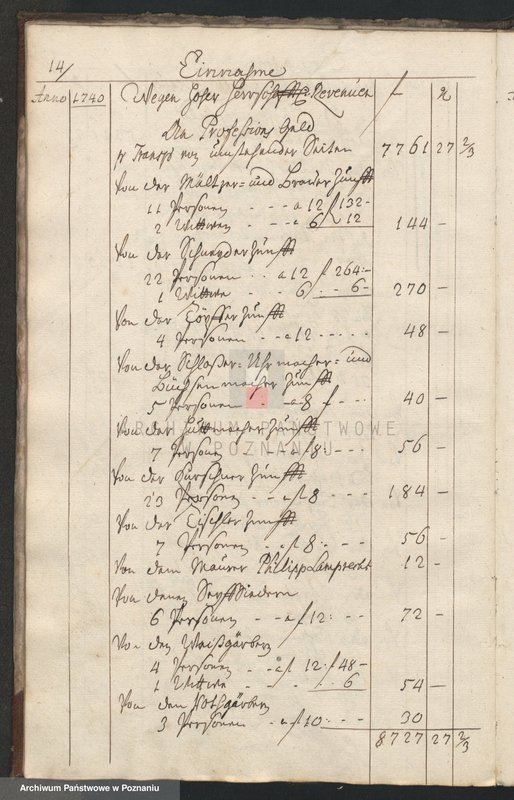 14/
Einnahme
Anno 1740 Wegen Hoher Herrschafft Revenuen f g
An Professions Geld
pr Transp von umstehender Seiten 7761 27 2/3
Von der Mältzer- und Brauer Zunfft
11 Persohnen - - a 12 f 132 -
2 Wittwen - - a 6 12 144 -
Von der Schneyder Zunfft
22 Persohnen . . a 12 f 264 -
1 Wittwe 6 - 6 - 270 -
Von der Töpffer Zunfft
4 Persohnen - - a 12 - - - - 48 -
Von der Schloßer- Uhrmacher- und
Büchsenmacher Zunfft
5 Persohnen - a 8 f - - - 40 -
Von der Huttmacher Zunfft
7 Persohnen f 8 - - - 56 -
Von der Kürschner Zunfft
23 Persohnen - - a f 8 - - - 184 -
Von der Tischler Zunfft
7 Persohnen - a f 8 - - - 56 -
Von dem Maurer Philipp Lamprecht 12 -
Von denen Seyffsiedern
6 Persohnen - - a f 12 - - - 72 -
Von den Weißgärbern
4 Persohnen - - a f 12 f 48 -
1 Wittwe - - - 6 54 -
Von den Rothgärbern
3 Persohnen - a f 10 - - - 30
8727 27 2/3
ARCHIWUM PAŃSTWOWE
W POZNANIU
Archiwum Państwowe w Poznaniu